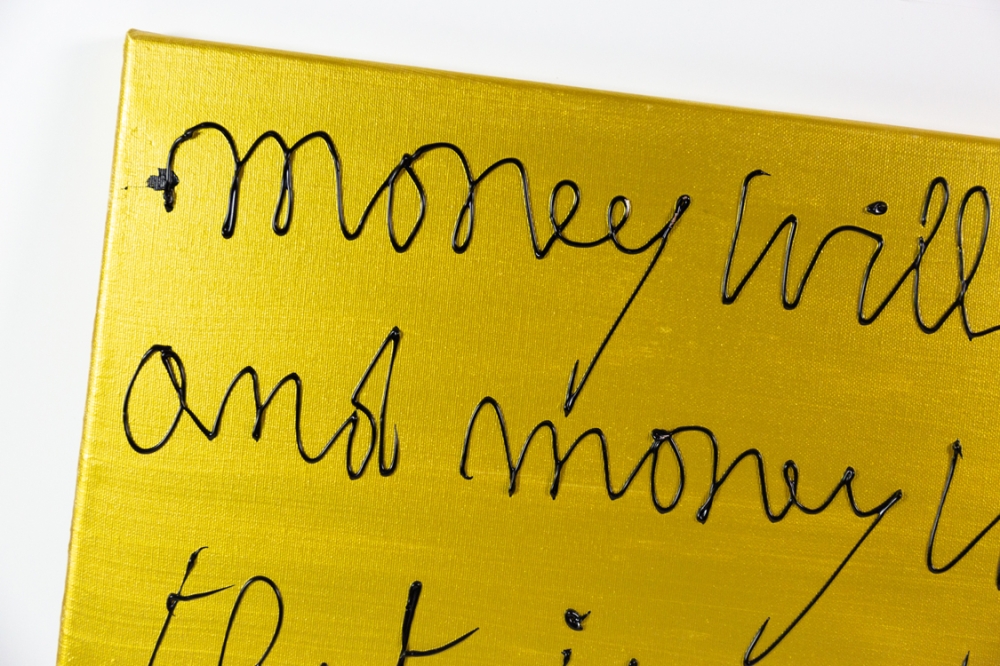 money will
and money
that